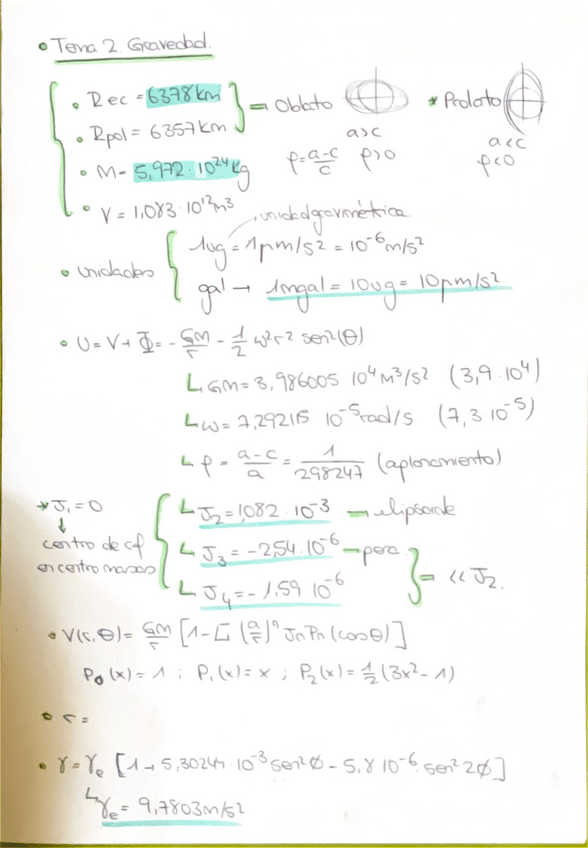 • Tema 2. Gravedad.
• Rec = 6378 km
• Rpol = 6357 km
= Oblato
a>c
f = a-c/c f>0
* Prolato
a<c
f<0
• M = 5,972 · 10²⁴ kg
• V = 1,083 · 10¹² m³
unidad gravimétrica
• unidades
1ug = 1μm/s² = 10⁻⁶ m/s²
gal → 1mgal = 10ug = 10μm/s²
• U = V + Φ = - GM/r - 1/2 ω² r² sen²(θ)
↳ GM = 3,986005 10⁴ m³/s² (3,9 · 10⁴)
↳ ω = 7,292115 10⁻⁵ rad/s (7,3 10⁻⁵)
↳ f = a-c/a = 1/298247 (aplanamiento)
* J₁ = 0
↓
centro de cf
en centro masas
↳ J₂ = 1,082 · 10⁻³ — elipsoide
↳ J₃ = -2,54 · 10⁻⁶ — pera
↳ J₄ = -1.59 · 10⁻⁶
= << J₂.
• V(r,θ) = GM/r [1 - Σ (a/r)ⁿ Jn Pn (cosθ)]
P₀(x) = 1 ; P₁(x) = x ; P₂(x) = 1/2 (3x² - 1)
• r =
• γ = γe [1 + 5,30244 · 10⁻³ sen²Ø - 5,8 10⁻⁶ · sen² 2Ø]
↳ γe = 9,7803 m/s²